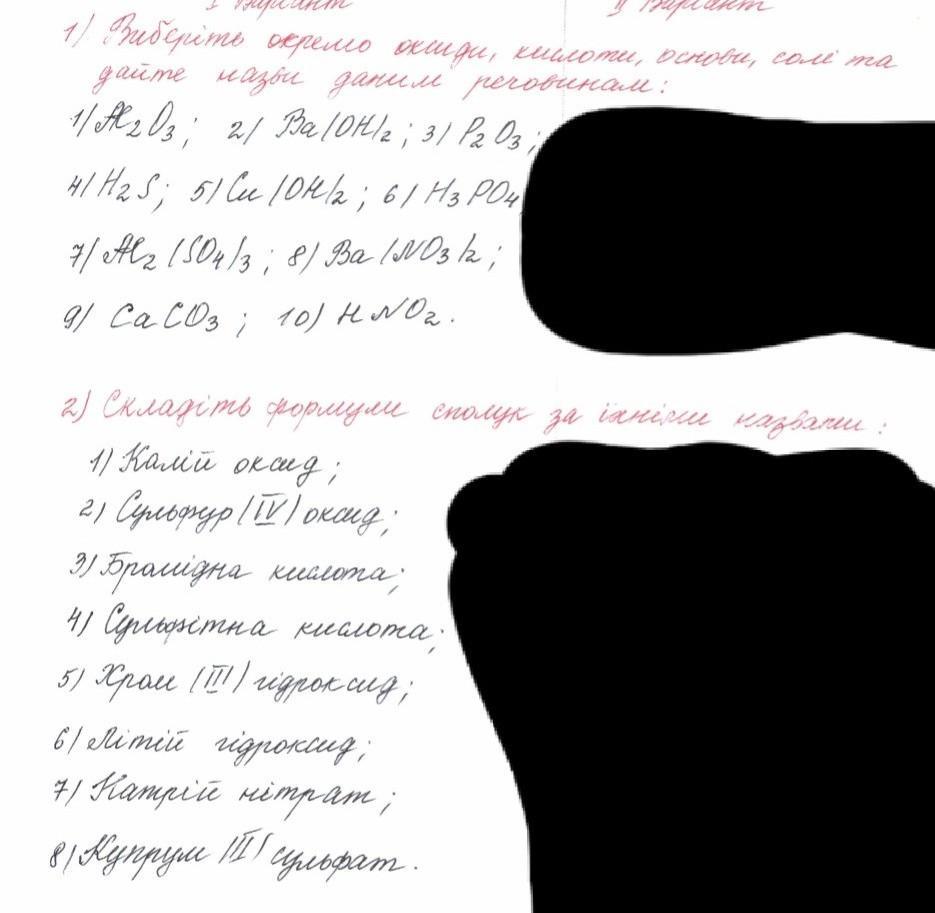 I Варіант II Варіант
1) Виберіть окремо оксиди, кислоти, основи, солі та
дайте назви даним речовинам:
1) Al2O3; 2) Ba(OH)2; 3) P2O3;
4) H2S; 5) Cu(OH)2; 6) H3PO4
7) Al2(SO4)3; 8) Ba(NO3)2;
9) CaCO3; 10) HNO2.
2) Складіть формули сполук за їхніми назвами:
1) Калій оксид;
2) Сульфур (IV) оксид;
3) Бромідна кислота;
4) Сульфітна кислота;
5) Хром (III) гідроксид;
6) Літій гідроксид;
7) Натрій нітрат;
8) Купрум (II) сульфат.